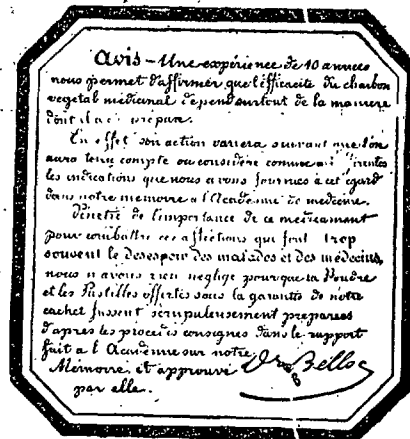 Avis – Une expérience de 10 années
nous permet d'affirmer que l'efficacité du charbon
végétal médicinal dépend surtout de la manière
dont il a été préparé.
En effet son action variera suivant que l'on
aura tenu compte ou considéré comme
les indications que nous avons fournies à cet égard
dans notre mémoire à l'Académie de médecine.
Pénétré de l'importance de ce médicament
pour combattre ces affections qui font trop
souvent le désespoir des malades et des médecins,
nous n'avons rien négligé pour que la Poudre
et les Pastilles offertes sous la garantie de notre
cachet fussent scrupuleusement préparées
d'après les procédés consignés dans le rapport
fait à l'Académie sur notre
Mémoire, et approuvé
par elle.
Dr Belloc